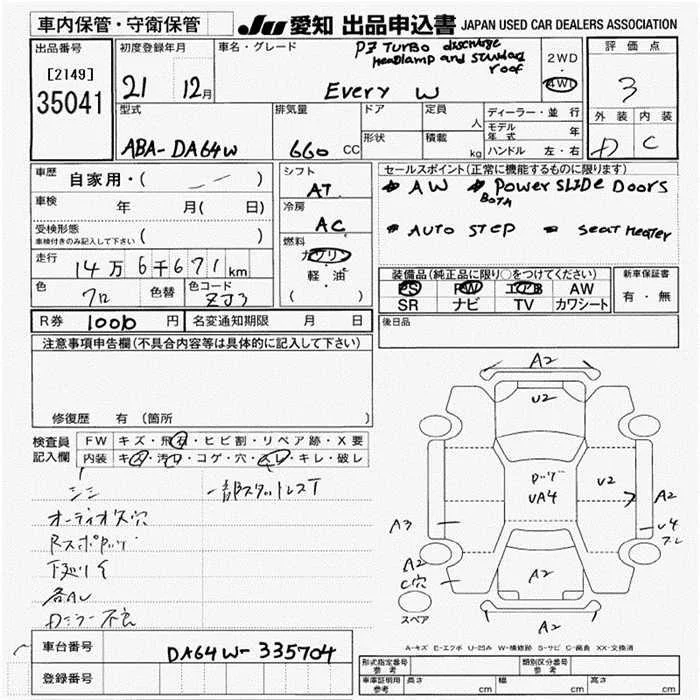 車内保管・守衛保管 JU 愛知 出品申込書 JAPAN USED CAR DEALERS ASSOCIATION
出品番号
[2149]
35041
初度登録年月
21 12月
車名・グレード
PZ TURBO discharge
headlamp and standard
roof
Every W
2WD
4WD
評価点
3
外装 内装
D C
型式
ABA-DA64W
排気量
660 CC
ドア
形状
定員 人
積載 kg
ディーラー・並行
モデル年式 年
ハンドル 左・右
車歴 自家用・( )
車検 年 月( 日)
受検形態
車検付きのみ記入して下さい ( )
走行 14万6千671 km
色 クロ 色替 色コード ZJ3
シフト
AT
冷房
AC
燃料
ガソリン
軽・油
( )
セールスポイント(正常に機能するものに限ります)
AW Power SLIDE Doors
BOTH
AUTO STEP Seat Heater
装備品(純正品に限り○をつけてください)
PS PW エアB AW
SR ナビ TV カワシート
新車保証書
有・無
R券 10010 円 名変通知期限 月 日
後日品
注意事項申告欄(不具合内容等は具体的に記入して下さい)
修復歴 有(箇所 )
検査員
記入欄
FW キズ・飛石・ヒビ割・リペア跡・X要
内装 キズ・汚レ・コゲ・穴・スレ・キレ・破レ
シミ 一部スタットレスT
オーディオ欠穴
下廻りサ
各AU
Dミラー不良
A2
U2
ロッグ
UA4
U2
A2
U4
スレ
A3
A2
C穴
A2
A2
スペア
A-キズ E-エクボ U-凹み W-補修跡 S-サビ C-腐食 XX-交換済
車台番号 DA64W-335704
登録番号
形式指定番号
参考
類別区分番号
参考
車庫証明用
参考
長さ cm 幅 cm 高さ cm